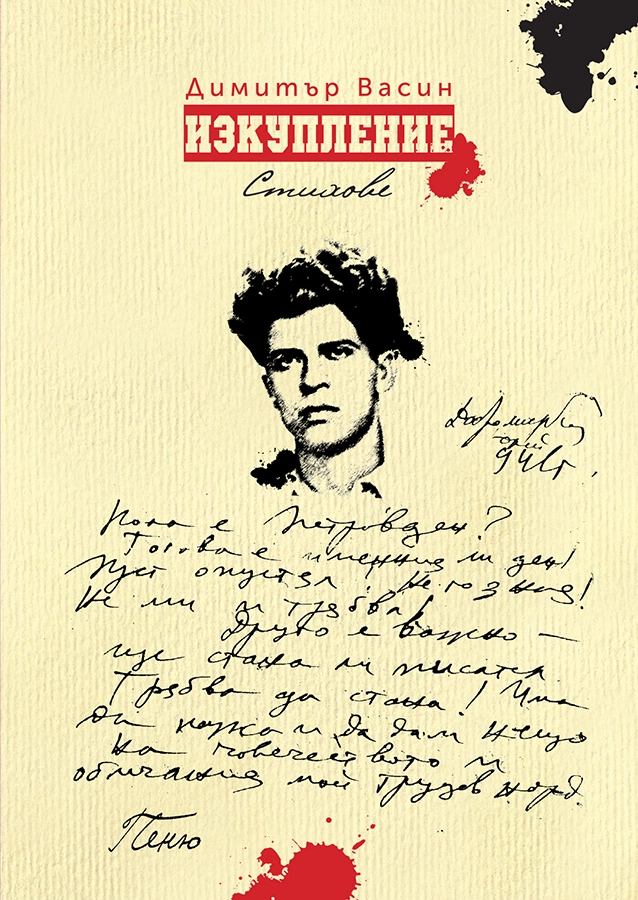 Димитър Васин
ИЗКУПЛЕНИЕ
Стихове
Добромирка
юни
941 г.
Кога е Петровден?
Тогава е именния ми ден!
Пуст опустял! Не го зная!
Не ми и трябва!
Друго е важно —
ще стана ли писател
Трябва да стана! Има
да кажа и да дам нещо
на човечеството и
обичания мой трудов народ.
Пеню